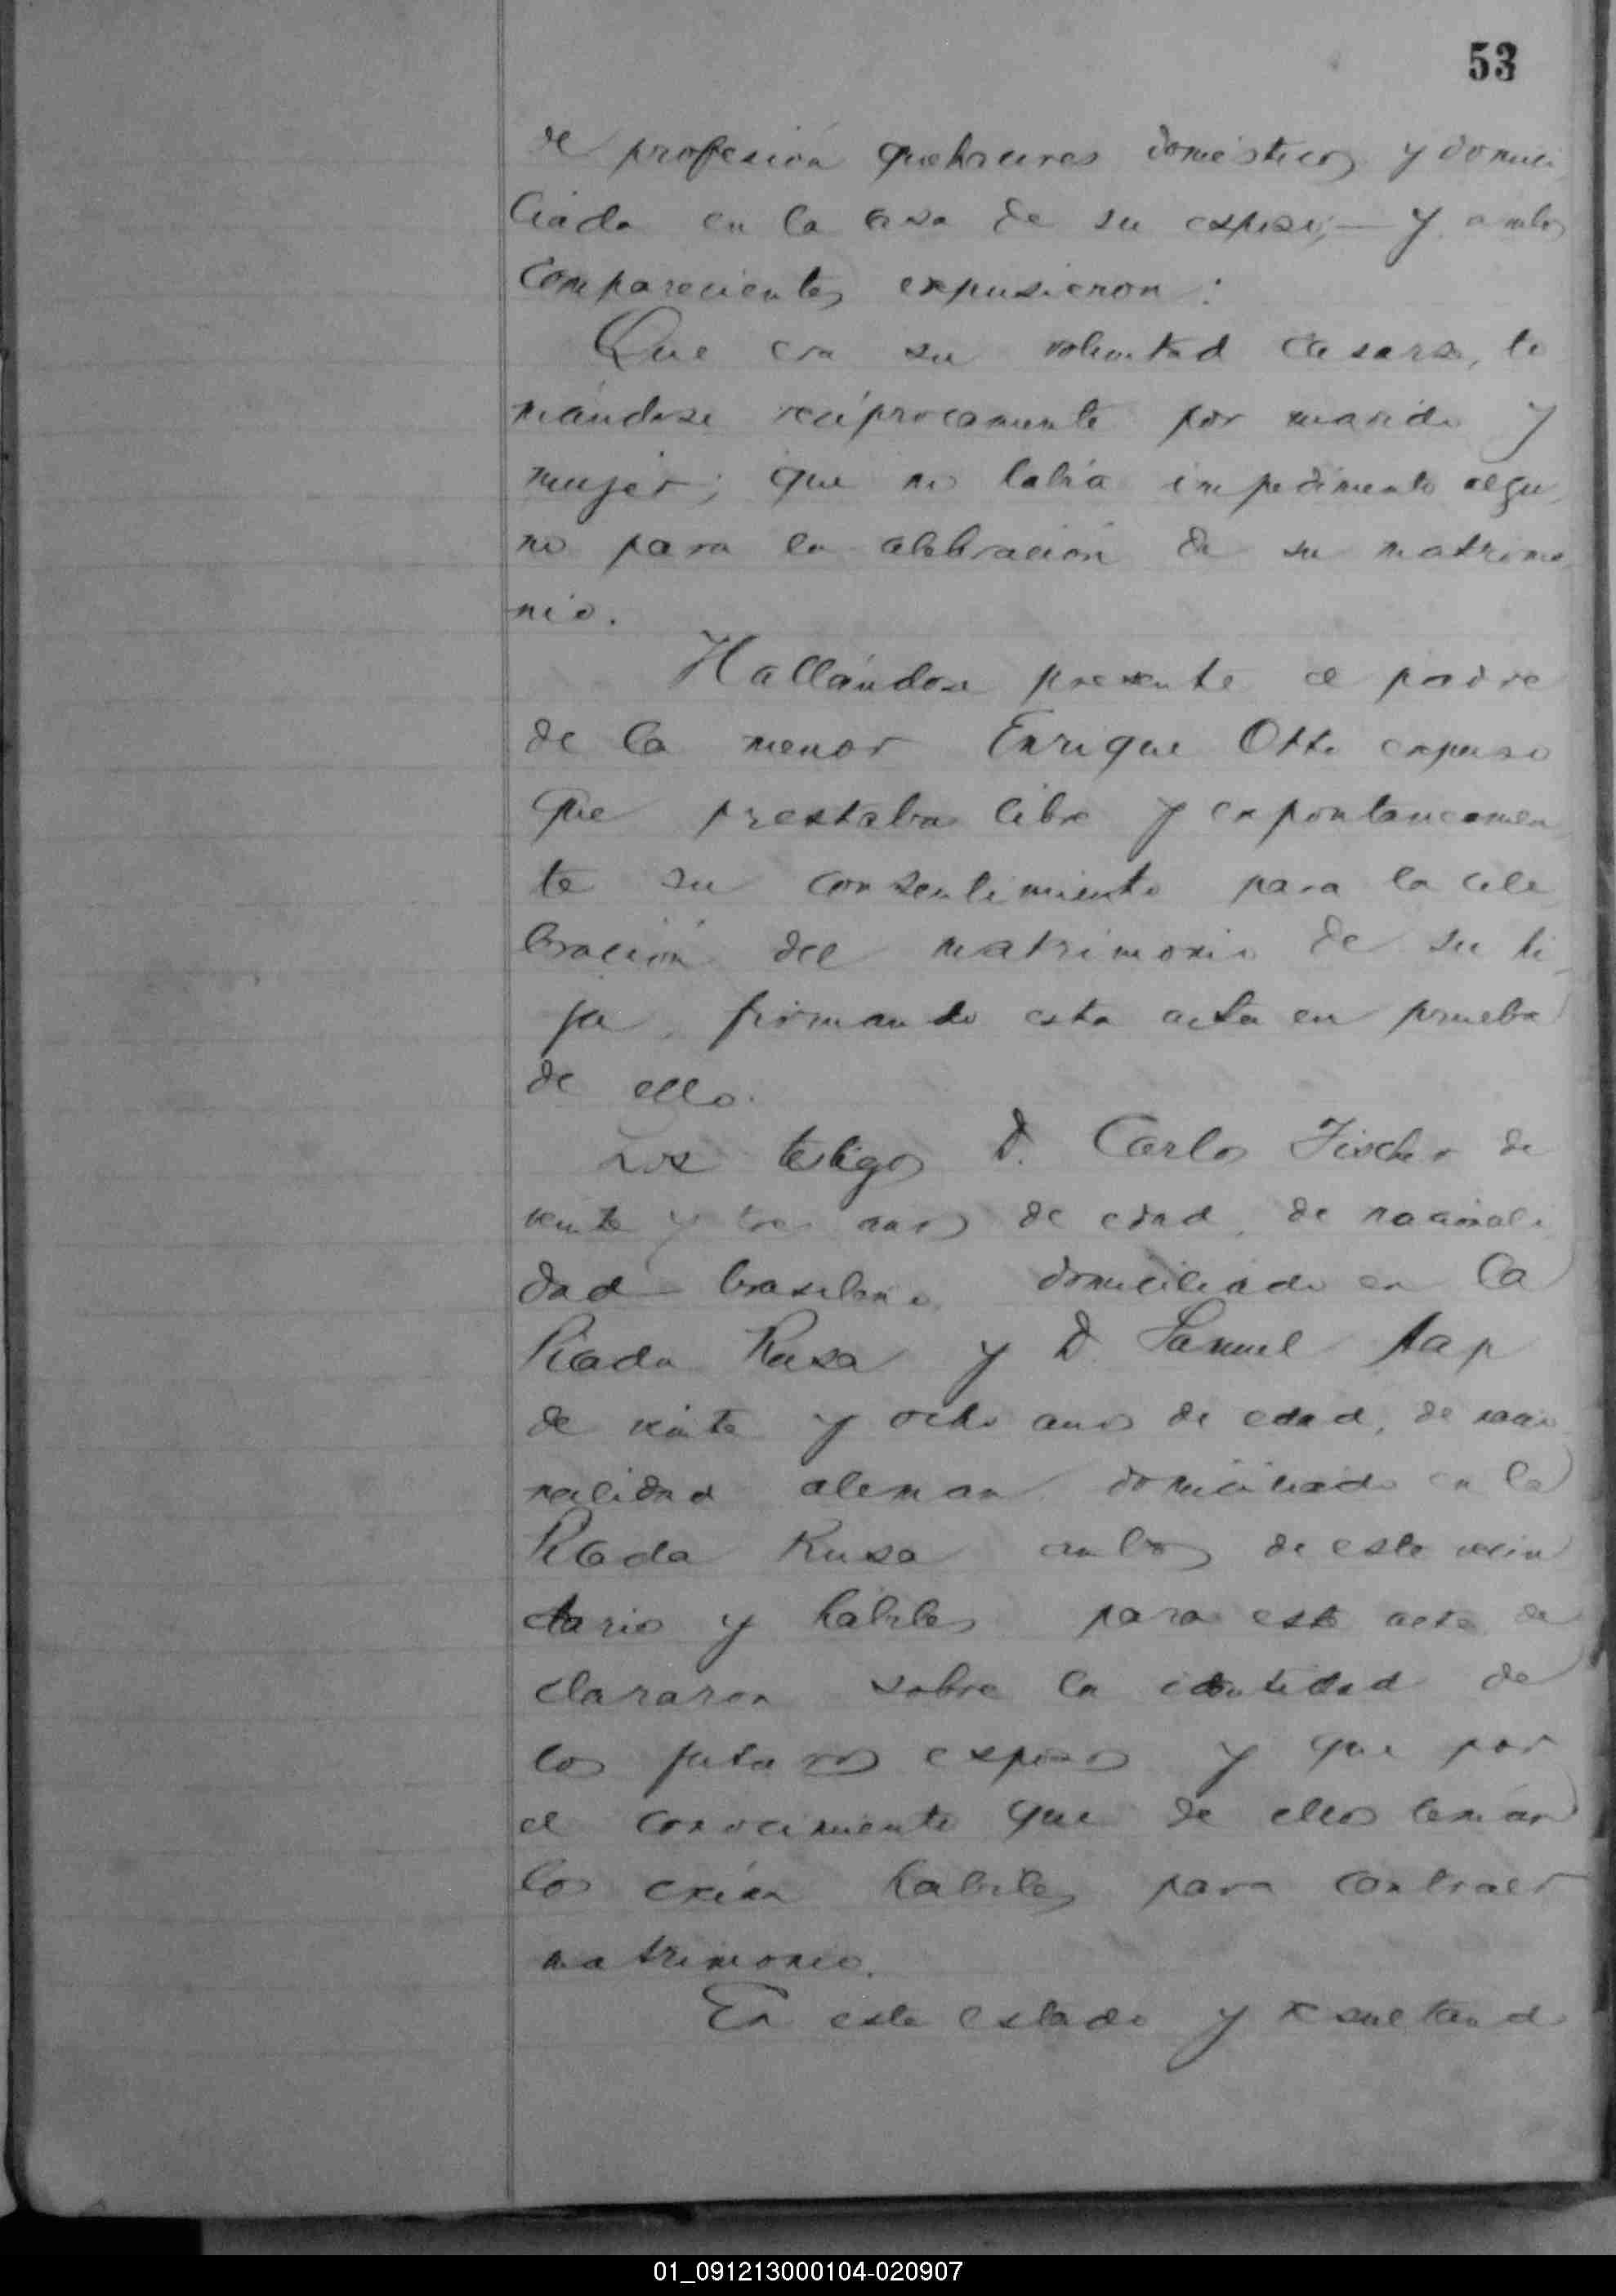 53
de profesión quehaceres domésticos y domici
liada en la casa de su esposo; — y ambos
comparecientes expusieron :
Que era su voluntad casarse, to
mándose recíprocamente por marido y
mujer; que no había impedimento algu
no para la celebración de su matrimo
nio.
Hallándose presente el padre
de la menor Enrique Otto expuso
que prestaba libre y expontaneamen
te su consentimiento para la cele
bración del matrimonio de su hi
ja, firmando esta acta en prueba
de ello.
Los testigos D. Carlos Fischer de
veinte y tres años de edad, de nacionali
dad brasilena, domiciliado en la
Picada Rusa y D. Samuel
de veinte y ocho años de edad, de nacio
nalidad aleman domiciliado en la
Picada Rusa ambos de este vecin
dario y habiles para este acto de
clararon sobre la identidad de
los futuros esposos y que por
el conocimiento que de ellos tenían
los creían habiles para contraer
matrimonio.
En este estado y resultand
01_091213000104-020907